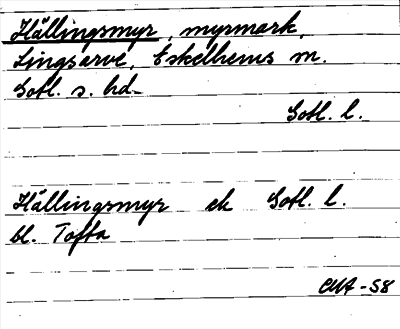 Hällingsmyr, myrmark,
Lingsarve, Eskelhems sn.
Gotl. s. hd.
Gotl. l.
Hällingsmyr ek Gotl. l.
bl. Tofta